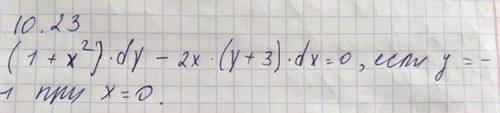 10.23
(1 + x²)·dy - 2x·(y+3)·dx=0, если y = -
1 при x=0.